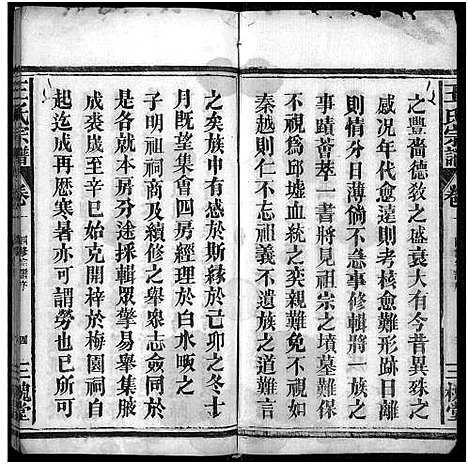 王氏宗譜
卷一
三槐堂
之豐嗇德敎之盛衰大有今昔異殊之
感况年代愈遠則考核愈難形跡日離
則情意日薄倘不急事修輯將一族之
事蹟薈萃一書將見祖宗之墳墓難保
不視爲邱墟血氣之奕親難免不遺爲
秦越則任世遠不忍族之道謂
之矣族中有鑒於此於己卯之冬十
月旣望集會四房紀綱於白水畈之
子明祠議及續修之舉衆志僉同於
是各就本房分途採輯眾擎易舉集腋
成裘歲至壬午始克開辦於梅園祠自
起迄成再歷寒暑亦可謂勞也已
王氏宗譜
卷一
四
三槐堂